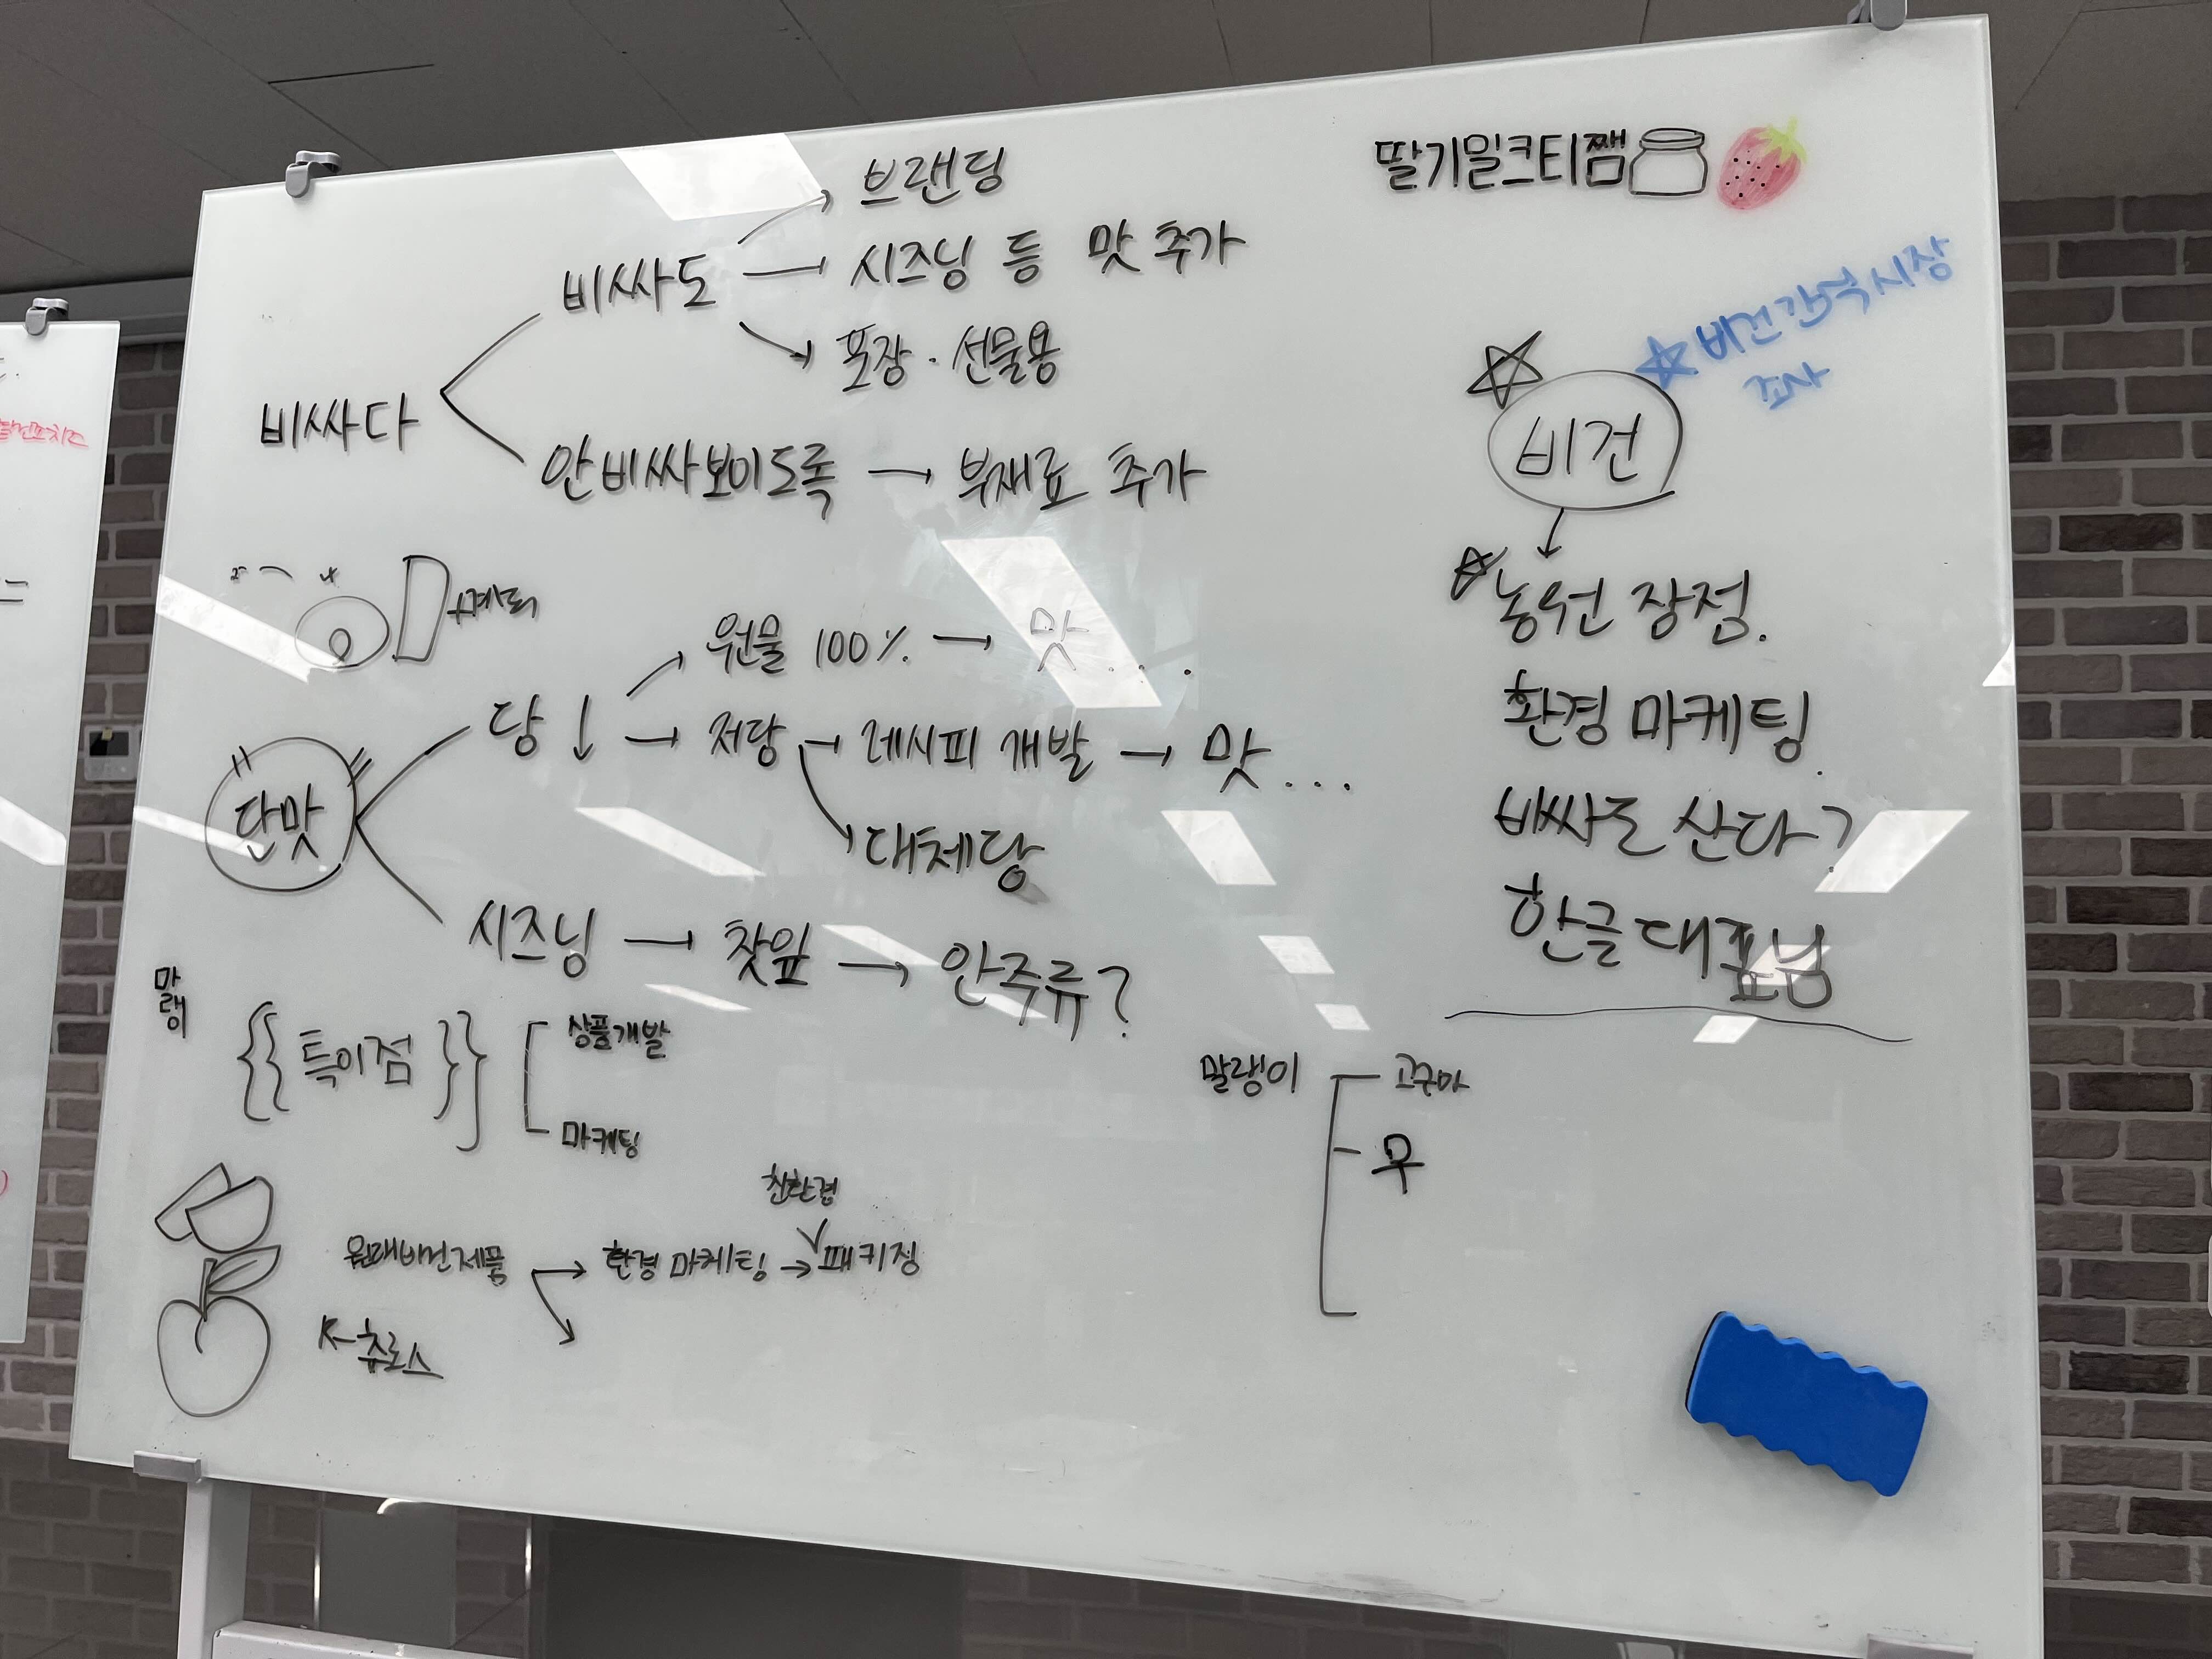 딸기밀크티쨈
브랜딩
비싸도 → 시즈닝 등 맛 추가
포장 · 선물용
비싸다
안비싸보이도록 → 부재료 추가
☆비건간식시장
조사
비건
농원 장점.
환경 마케팅.
비싸도 산다?
한글대표님
원물 100% → 맛....
당↓ → 저당 → 레시피 개발 → 맛...
대체당
단맛
시즈닝 → 찻잎 → 안주류?
{{특이점}}
상품개발
마케팅
말랭이
고구마
무
친환경
원래비건제품 → 환경 마케팅 → 패키징
K-츄로스